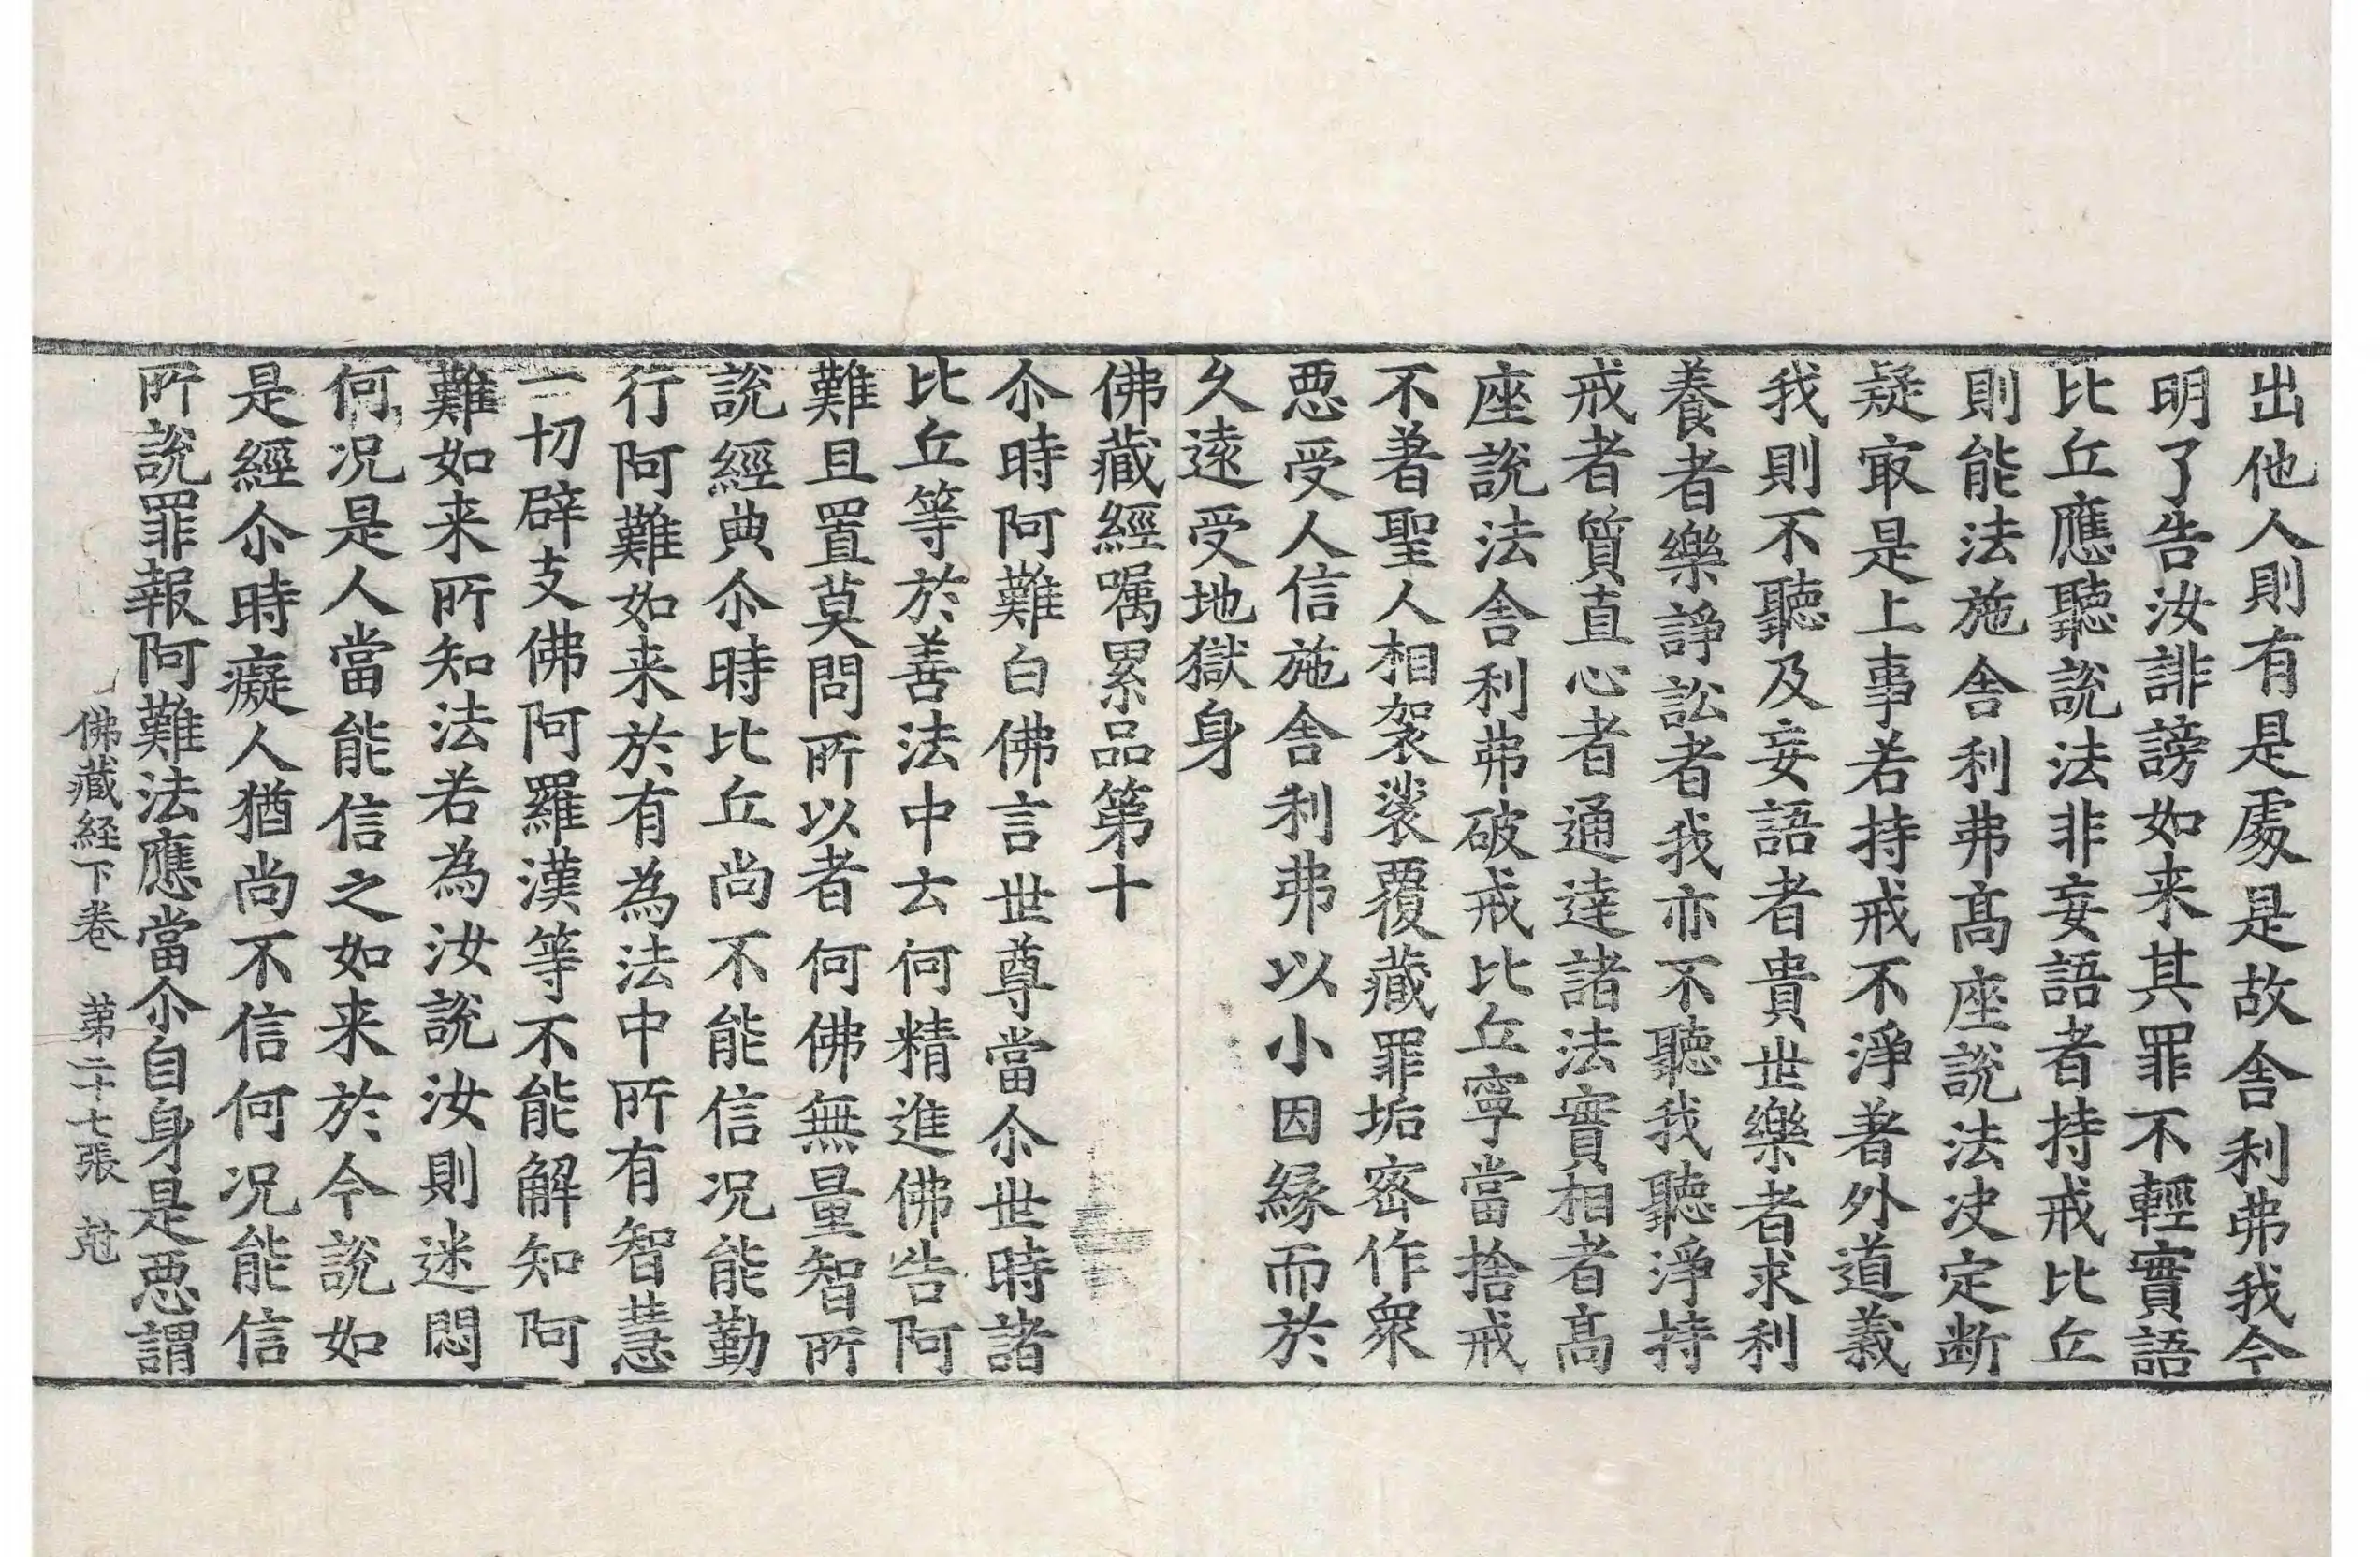 出他人則有是處是故舎利弗我今
明了告汝誹謗如来其罪不輕實語
比丘應聽說法非妄語者持戒比丘
則能法施舎利弗髙座說法决定断
疑㝡是上事若持戒不淨著外道義
我則不聽及妄語者貴世樂者求利
養者樂諍訟者我亦不聽我聽淨持
戒者質直心者通達諸法實相者髙
座說法舎利弗破戒比丘寧當捨戒
不著聖人相袈裟覆藏罪垢密作衆
惡受人信施舎利弗以小因緣而於
久遠受地獄身
佛藏經囑累品第十
尒時阿難白佛言世尊當尒世時諸
比丘等於善法中云何精進佛告阿
難且置莫問所以者何佛無量智所
說經典尒時比丘尚不能信况能勤
行阿難如来於有為法中所有智慧
一切辟支佛阿羅漢等不能解知阿
難如来所知法若為汝說汝則迷悶
何况是人當能信之如来於今說如
是經尒時癡人猶尚不信何况能信
所說罪報阿難法應當尒自身是惡謂
佛藏経下卷 苐二十七張 尅